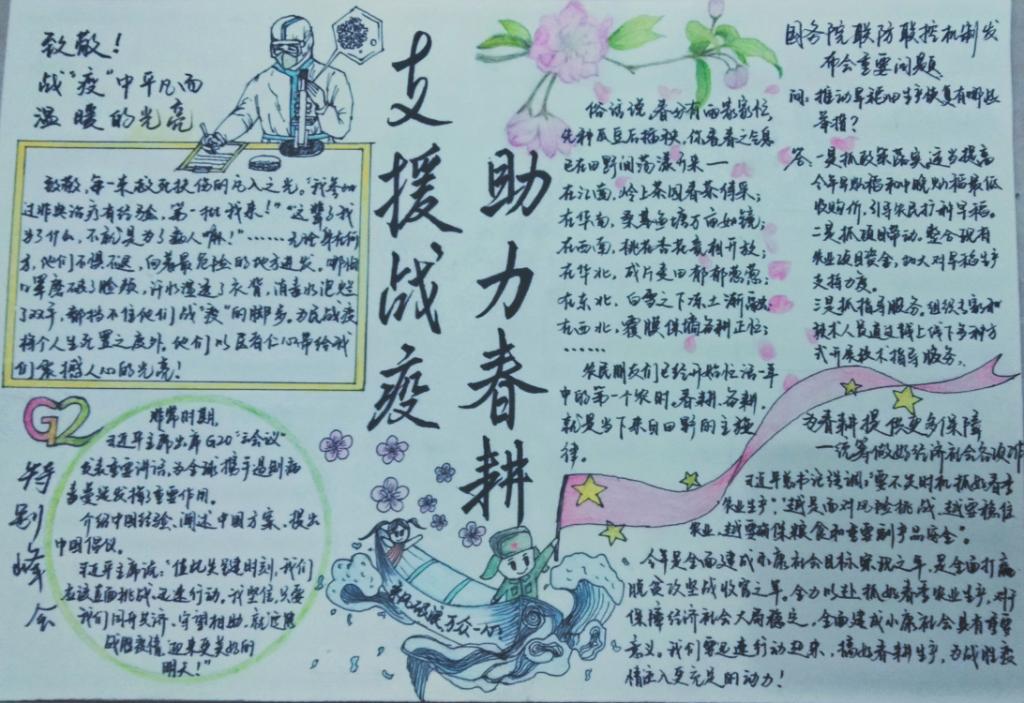 致敬！
战“疫”中平凡而
温暖的光亮
致敬，每一束救死扶伤的凡人之光。“我参加
过非典治疗有经验，第一批我来！”“这辈子我
为了什么，不就是为了病人嘛！”……无论身在何
方，他们不惧不退，向着最危险的地方进发。哪怕
口罩磨破了脸颊，汗水湿透了衣背，消毒水泡烂
了双手，都挡不住他们战“疫”的脚步。为民战疫
将个人生死置之度外，他们以医者仁心带给我
们震撼人心的光亮！
支援战疫
助力春耕
俗话说，春分有雨农家忙，
先种豆豆后插秧。你看春之气息
已在田野间荡漾开来——
在江南，岭上茶园春茶待采；
在华南，桑基鱼塘万亩如镜；
在西南，桃花杏花竞相开放；
在华北，成片麦田郁郁葱葱；
在东北，白雪之下冻土渐融；
在西北，覆膜保墒备耕正忙；
……
农民朋友们已经开始忙活一年
中的第一个农时。春耕、备耕，
就是当下来自田野的主旋
律。
国务院联防联控机制发
布会重要问题
问：推动早稻田生产恢复有哪些
举措？
答：一是抓政策落实，适当提高
今年早籼稻和中晚籼稻最低
收购价，引导农民扩种早稻。
二是抓项目带动。整合现有
农业项目资金，加大对早稻生产
支持力度。
三是抓指导服务。组织专家和
技术人员通过线上线下多种方
式开展技术指导服务。
为春耕提供更多保障
—统筹做好经济社会各项
习近平总书记强调：“要不失时机抓好春季
农业生产”，“越是面对风险挑战，越要稳住
农业，越要确保粮食和重要副产品安全”。
今年是全面建成小康社会目标实现之年，是全面打赢
脱贫攻坚战收官之年，全力以赴抓好春季农业生产，对于
保障经济社会大局稳定，全面建成小康社会具有重要
意义。我们要迅速行动起来，搞好春耕生产，为战胜疫
情注入更充足的动力！
G2
特别峰会
非常时期，
习近平主席出席G20“云会议”
发表重要讲话，为全球携手遏制病
毒蔓延发挥了重要作用。
介绍中国经验、阐述中国方案、提出
中国倡议。
习近平主席说：“值此关键时刻，我们
应该直面挑战、迅速行动。我坚信，只要
我们同舟共济、守望相助，就
战胜疫情，迎来更美好的
明天！”
乘风破浪，万众一心